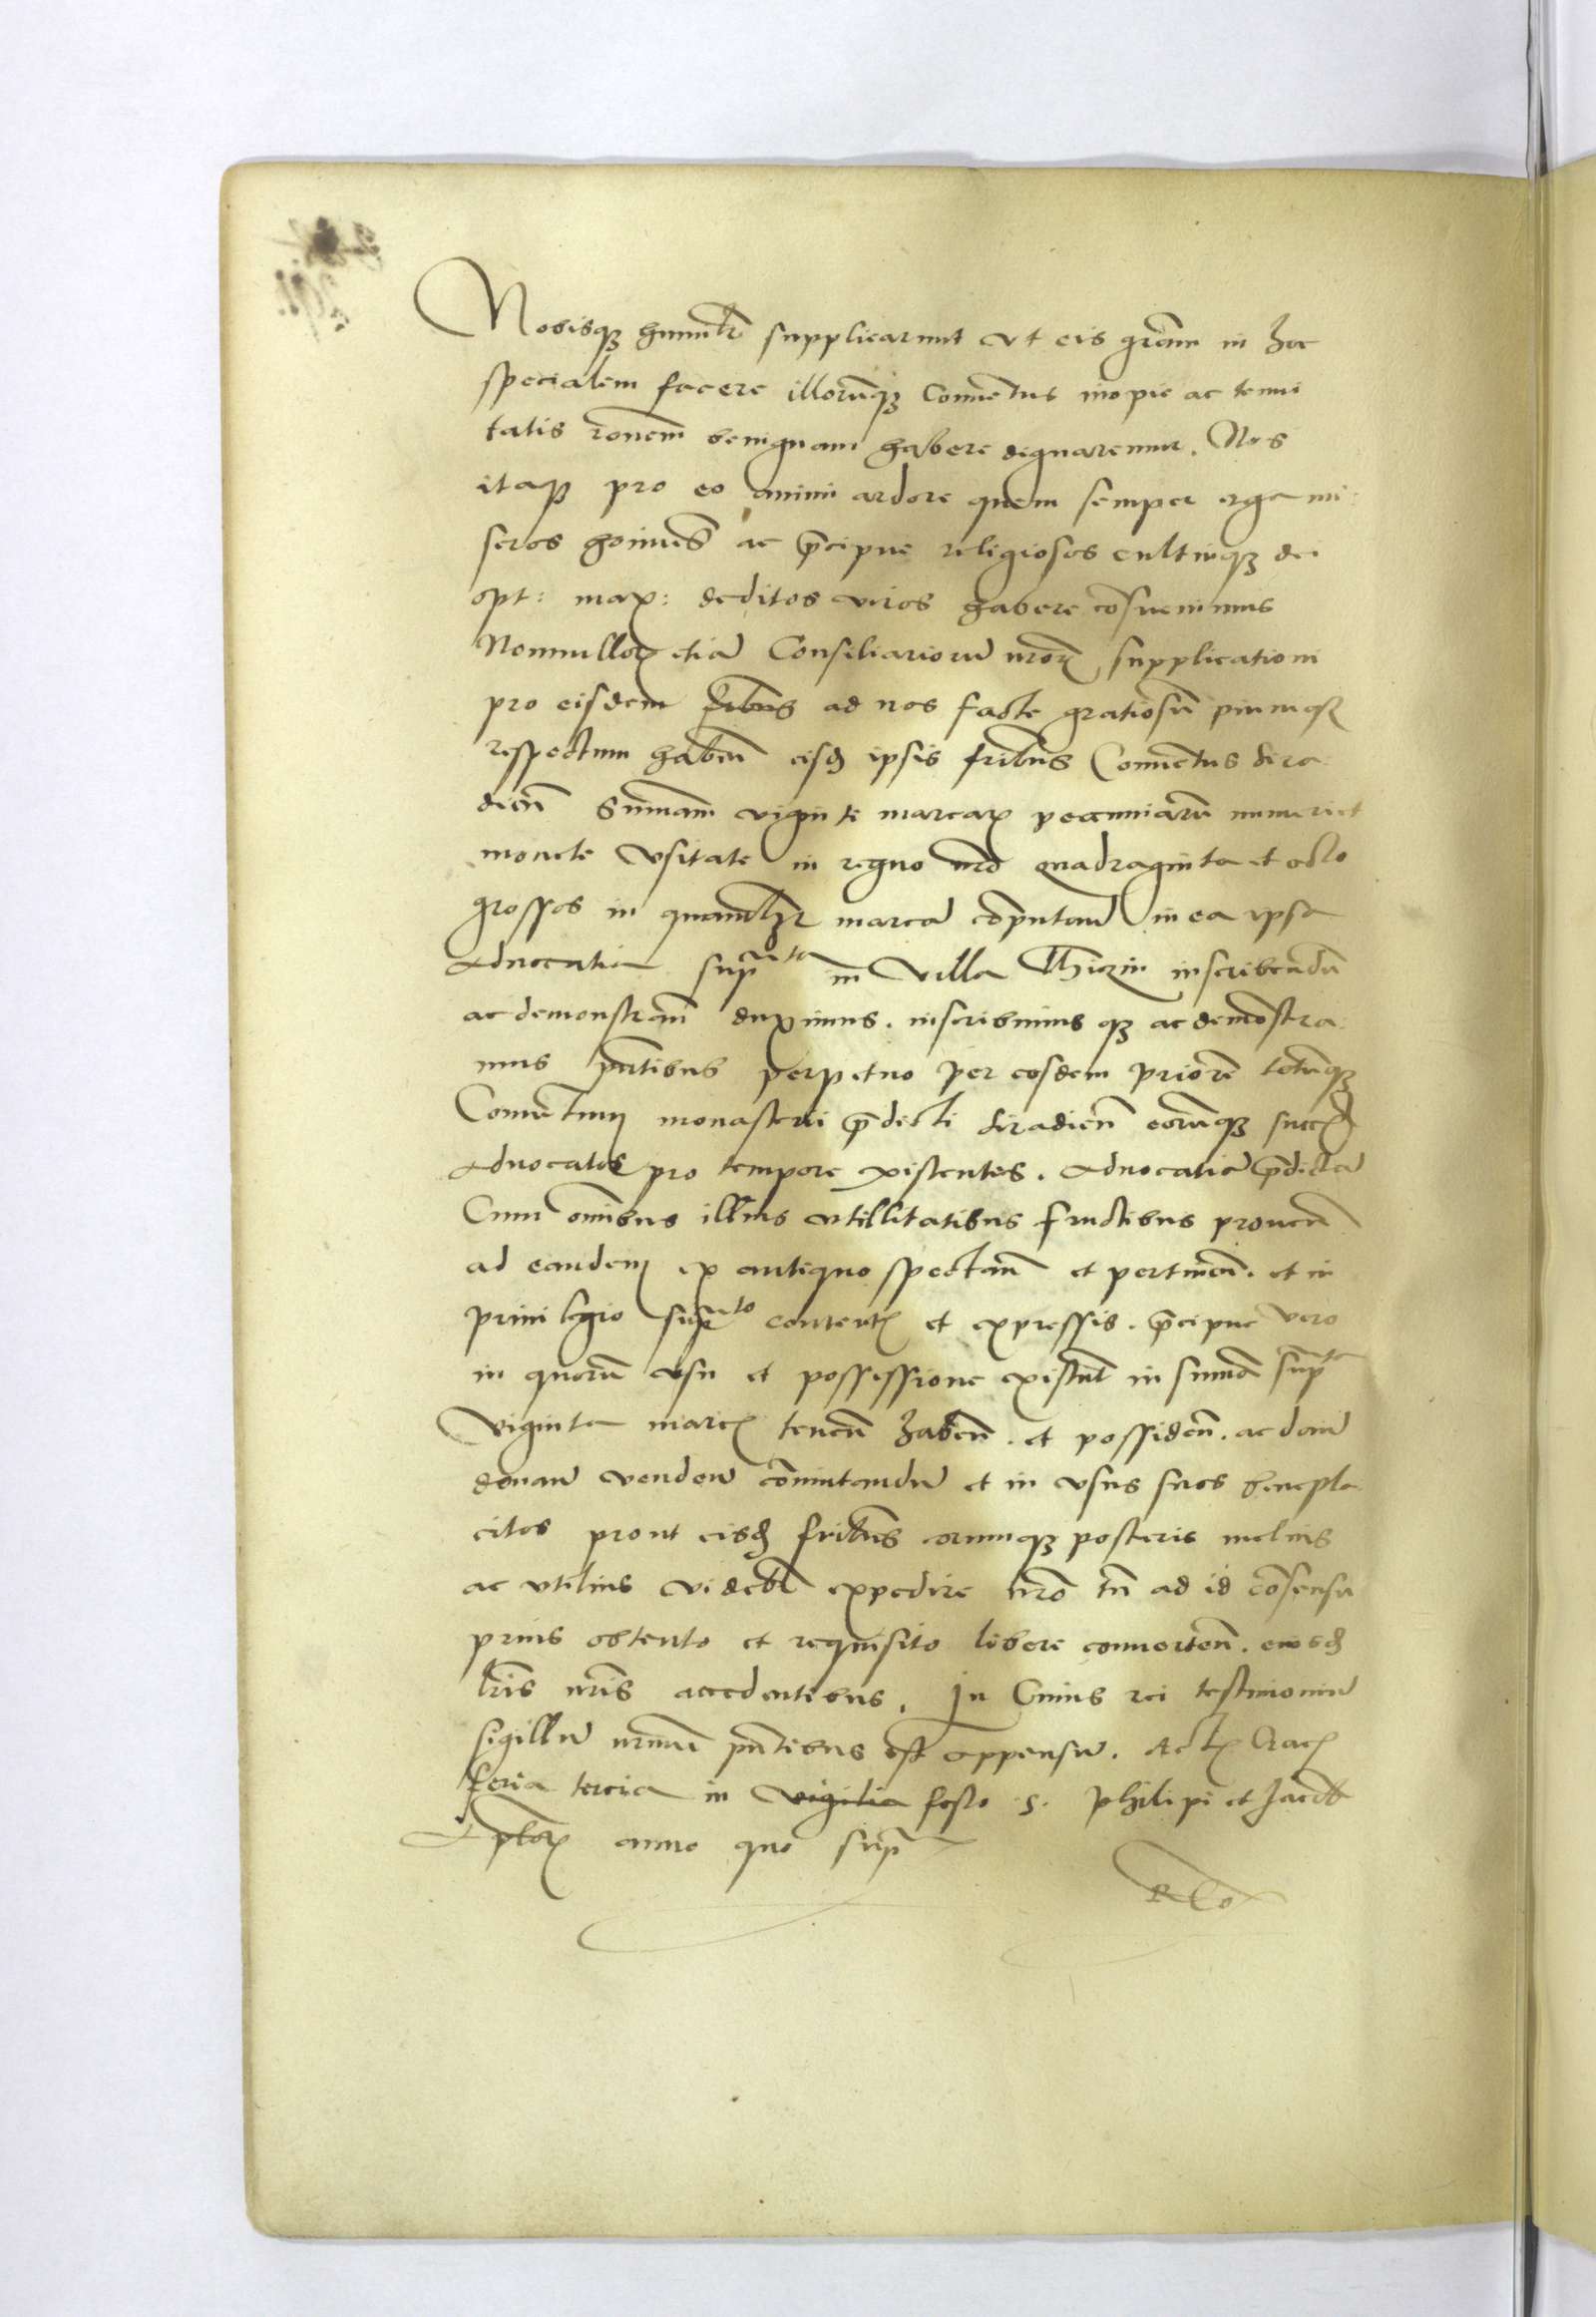 Nobisq3 humilr supplicarunt vt eis gram in hac
specialem facere illorumq3 Conuentus inopie ac tenui
tatis ronem benignam habere dignaremur. Nos
itaq3 pro eo animi ardore quem semper erga mi:
seros hoines ac pcipue religiosos cultuiq3 dei
opt: max: deditos viros habere cosueuimus
Nonnullor etia Consiliarioru nror supplicationi
pro eisdem fribus ad nos facte gratiosu piumq3
respectum haben eisd ipsis fribus Conuentus Sira
dien Summam viginti marcar pecuniarum numeri et
monete vsitate in regno nro quadraginta et octo
grossos in quamlibet marca coputan in ea ipsa
Aduocatia supta in Villa inscribendu
ac demonstran duximus. inscribimus q3 ac demostra
mus pntibus perpetuo per eosdem priore totumq3
Conuentum monasterii pdicti Siradien eorumq3 succes
Aduocatos pro tempore existentes. Aduocatia pdicta
Cum omibus illius vtillitatibus fructibus prouen
ad eandem ex antiquo spectan et pertinen. et in
priuilegio supto content et expressis. pcipue vero
in quorum vsu et possessione existunt in summa supta
Viginta marc tenen haben. et possiden. ac dan
donan venden comutandu et in vsus suos benepla
citos prout eisd fribus eorumq3 posteris melius
ac vtilius videbit expedire nro tn ad id cosensu
prius obtento et requisito libere conuerten. eiusd
lris nris accedentibus. In Cuius rei testimoniu
sigillu nrum pntibus est appensu. Act Crac
feria tercia in vigilia festo S. Philipi et Jacob
Aplor anno quo supra